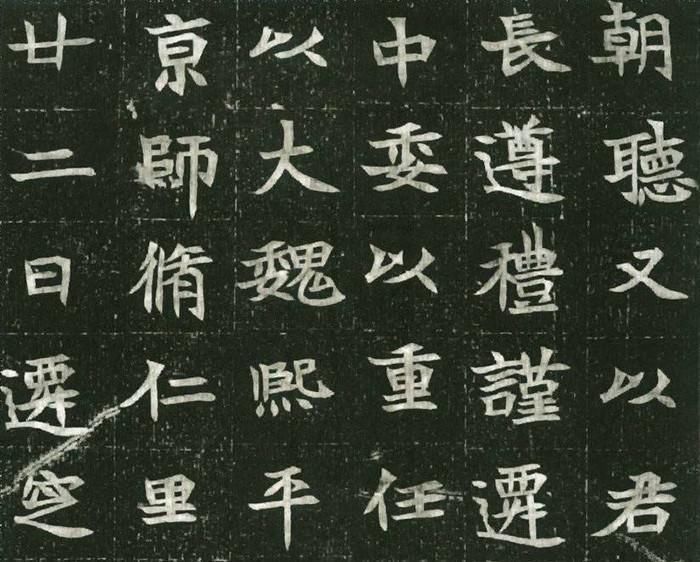 朝聽又以君
長遵禮謹遷
中委以重任
以大魏熙平
亰師脩仁里
廿二日遷窆